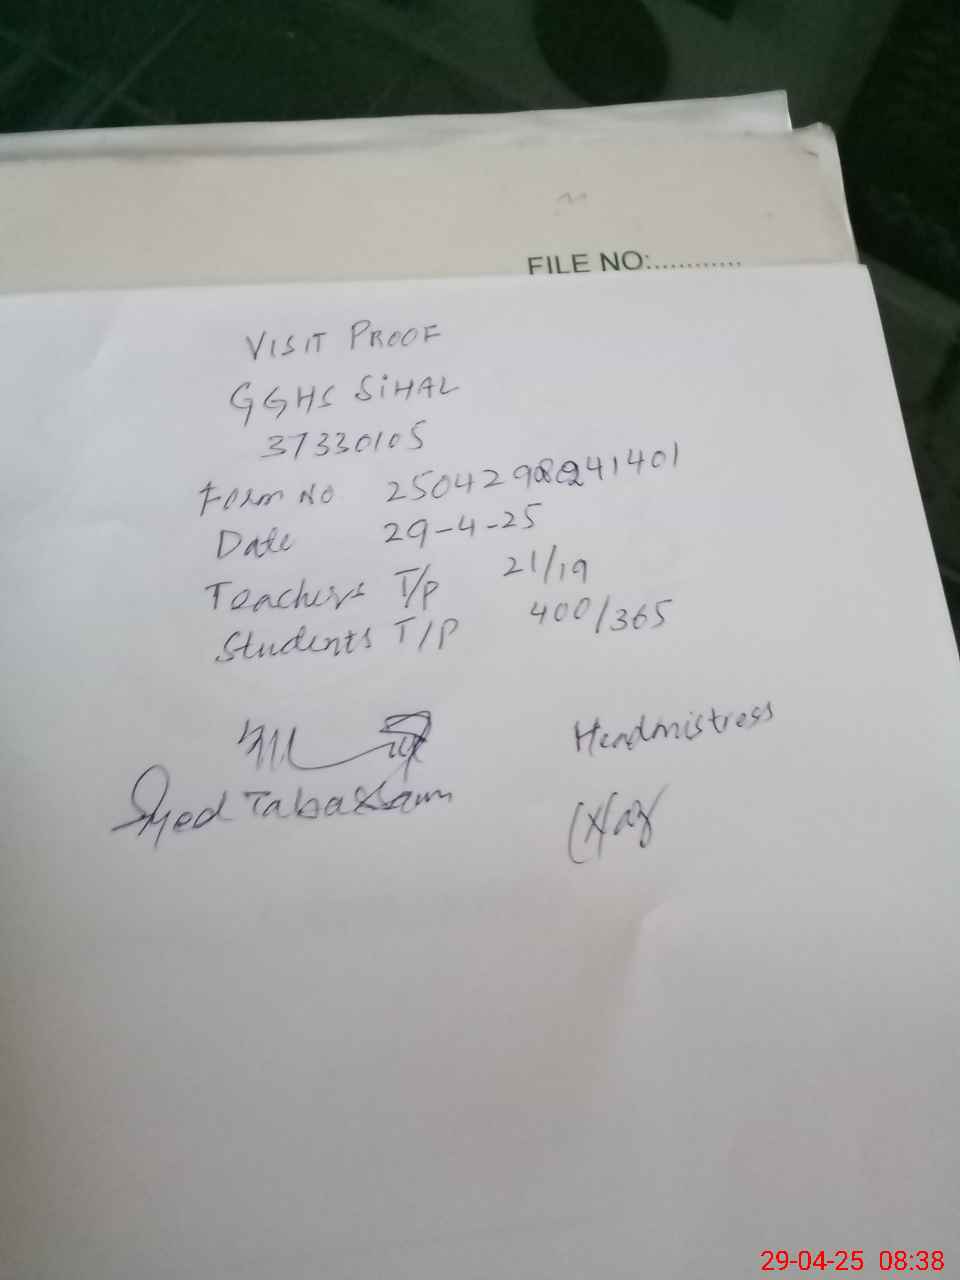 FILE NO:............
VISIT PROOF
GGHS SiHAL
37330105
Form No
Date 29-4-25
Teachers T/P 21/19
Students T/P 400/365
Headmistress
Syed Tabassum
29-04-25 08:38